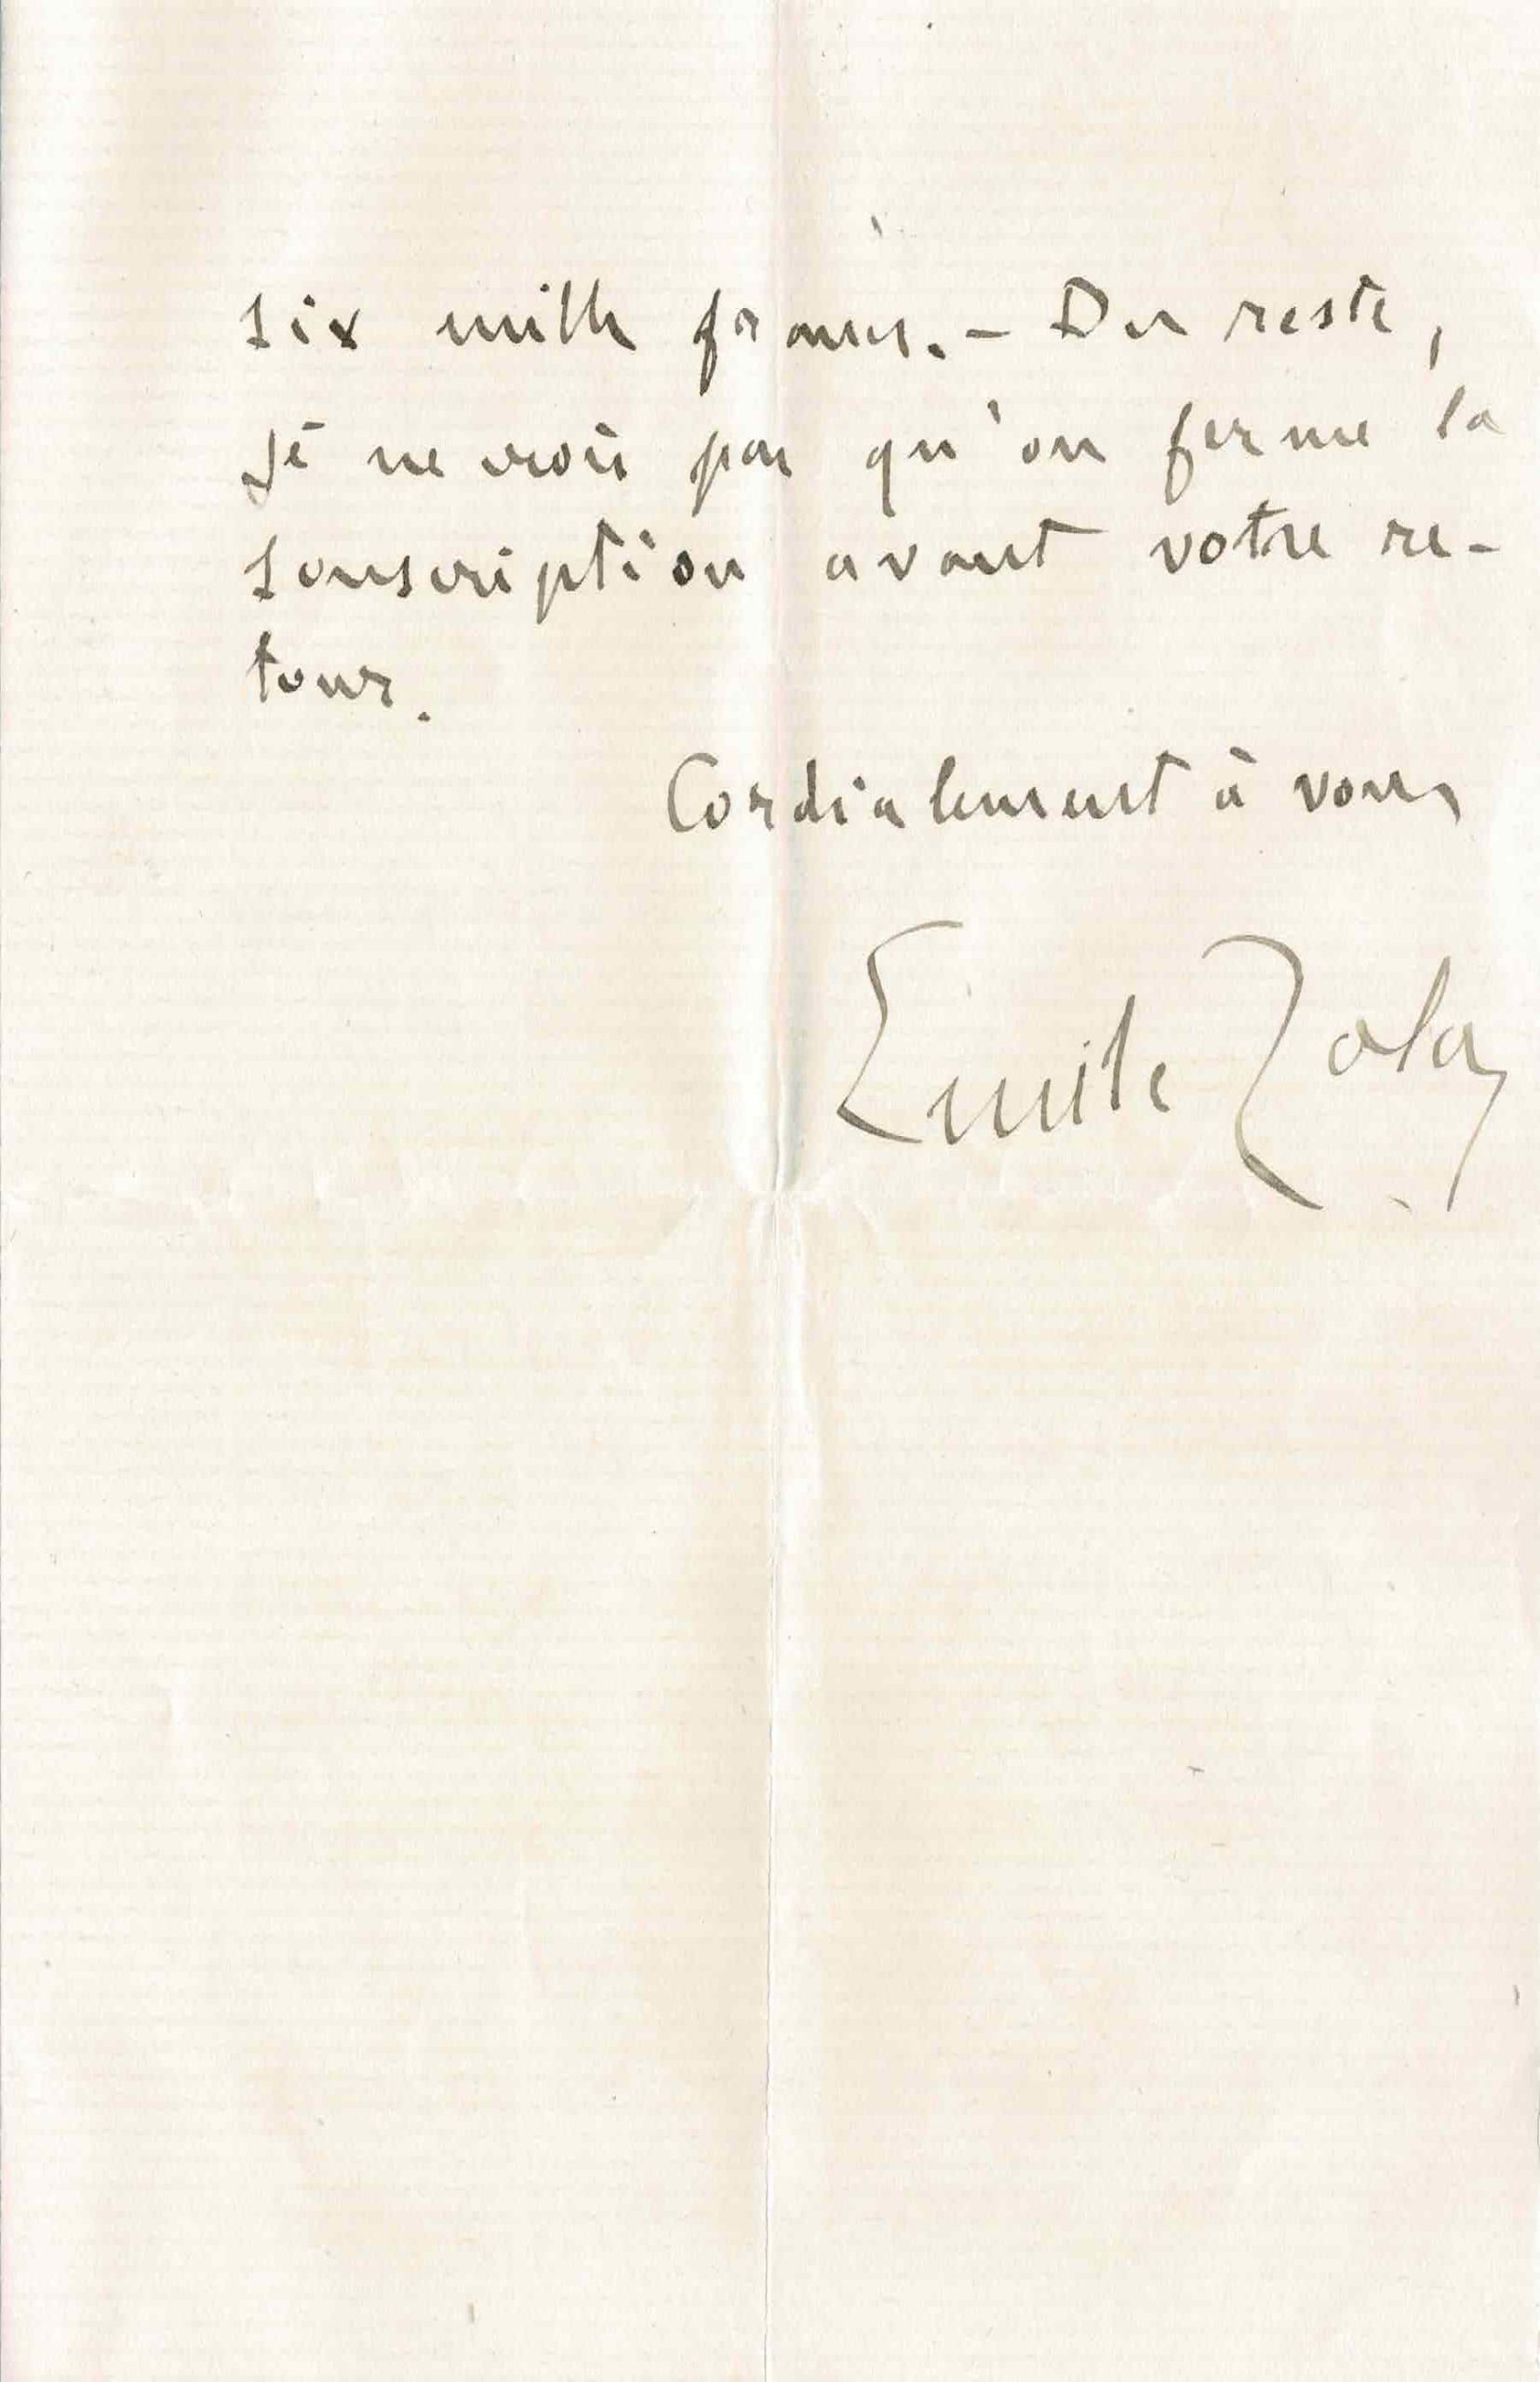 six mille francs. – Du reste,
je ne crois pas qu'on ferme la
souscription avant votre re-
tour.
Cordialement à vous
Emile Zola